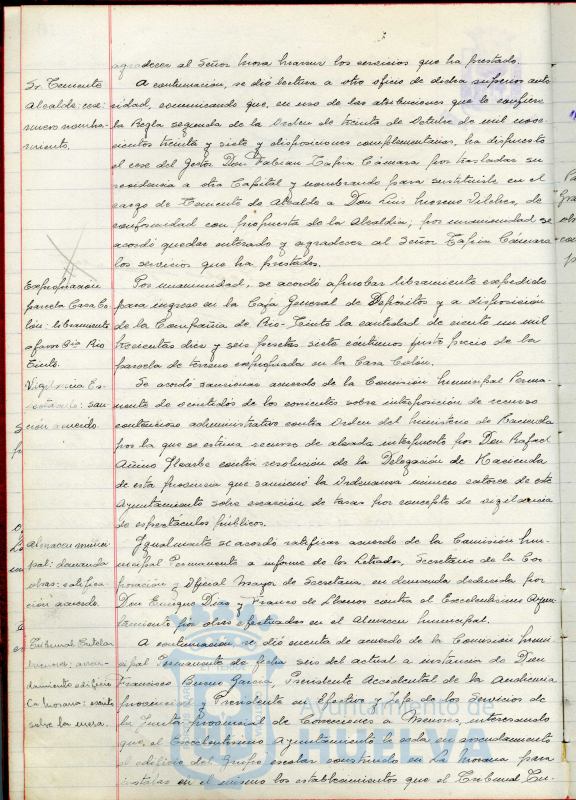 agradecer al Señor Mora Narann los servicios que ha prestado.
Sr. Teniente
Alcalde: cese:
nuevo nombra-
miento.
A continuación, se dió lectura a otro oficio de dicha superior auto-
ridad, comunicando que, en uso de las atribuciones que le confiere
la Regla segunda de la Orden de treinta de Octubre de mil nove-
cientos treinta y siete y disposiciones complementarias, ha dispuesto
el cese del Gestor Don Fabian Tapia Cámara por trasladar su
residencia a otra Capital y nombrando para sustituirle en el
cargo de Teniente de Alcalde a Don Luis Moreno Vilches, de
conformidad con propuesta de la Alcaldía; por unanimidad se
acordó quedar enterado y agradecer al Señor Tapia Cámara
los servicios que ha prestado.
Expropiación
parcela Casa Co-
lón: libramiento
a favor Cía Rio
Tinto.
Por unanimidad, se acordó aprobar libramiento expedido
para ingreso en la Caja General de Depósitos y a disposición
de la Compañia de Rio-Tinto la cantidad de ciento un mil
trescientas diez y seis pesetas siete céntimos justo precio de la
parcela de terreno expropiada en la Casa Colón.
Vigilancia Es-
pectáculo: san-
ción acuerdo.
Se acordó sancionar acuerdo de la Comisión Municipal Perma-
nente de veintidós de los corrientes sobre interposición de recurso
contencioso administrativo contra Orden del Ministerio de Hacienda
por la que se estima recurso de alzada interpuesto por Don Rafael
contra resolución de la Delegación de Hacienda
de esta provincia que sancionó la Ordenanza número catorce de este
Ayuntamiento sobre exacción de tasas por concepto de vigilancia
de espectáculos públicos.
Almacen munici-
pal: demanda
obras: ratifica-
ción acuerdo.
Igualmente se acordó ratificar acuerdo de la Comisión Mu-
nicipal Permanente a informe de los Letrados, Secretario de la Cor-
poración y Oficial Mayor de Secretaria, en demanda deducida por
Don Enrique Diaz y Franco de Llanos contra el Excelentísimo Ayun-
tamiento por obras efectuadas en el Almacen Municipal.
Tribunal Tutelar
Menores; arren-
damiento edificio
La Morana: queda
sobre la mesa.
A continuación, se dió cuenta de acuerdo de la Comisión Muni-
cipal Permanente de fecha seis del actual a instancia de Don
Francisco Bueno Garcia, Presidente Accidental de la Audiencia
provincial y Presidente en efectivo y Jefe de los Servicios de
la Junta Provincial de Protecciones a Menores, interesando
que el Excelentísimo Ayuntamiento le ceda en arrendamiento
el edificio del Grupo escolar construido en La Morana para
instalar en el mismo los establecimientos que el Tribunal Tu-
Ayuntamiento de
HUELVA